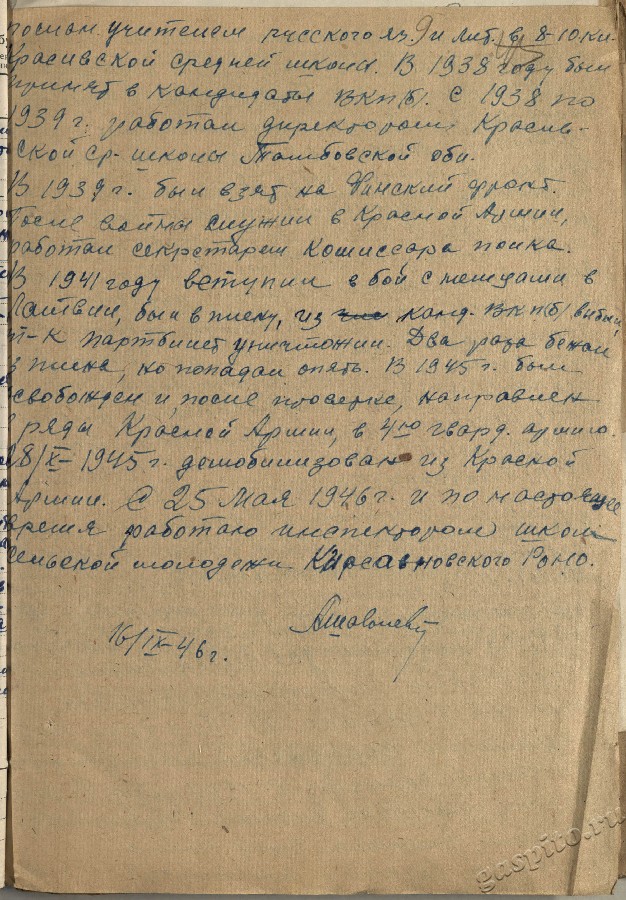 послан учителем русского яз. и лит. в 8-10 кл.
Красивской средней школы. В 1938 году был
принят в кандидаты ВКП(б). С 1938 по
1939 г. работал директором Красив-
ской ср. школы Тамбовской обл.
В 1939 г. был взят на Финский фронт.
После войны служил в Красной Армии,
работал секретарем комиссара полка.
В 1941 году вступил в бой с немцами в
Латвии, был в плену, из канд. ВКП(б) выбыл,
т-к партбилет уничтожил. Два раза бежал
из плена, но попадал опять. В 1945 г. был
освобожден и, после проверки, направлен
в ряды Красной Армии, в 4ую гвард. армию.
28/X-1945 г. демобилизован из Красной
Армии. С 25 мая 1946 г. и по настоящее
время работаю инспектором школ
сельской молодежи Кирсановского РОНО.
16/IX-46 г.
gaspito.ru